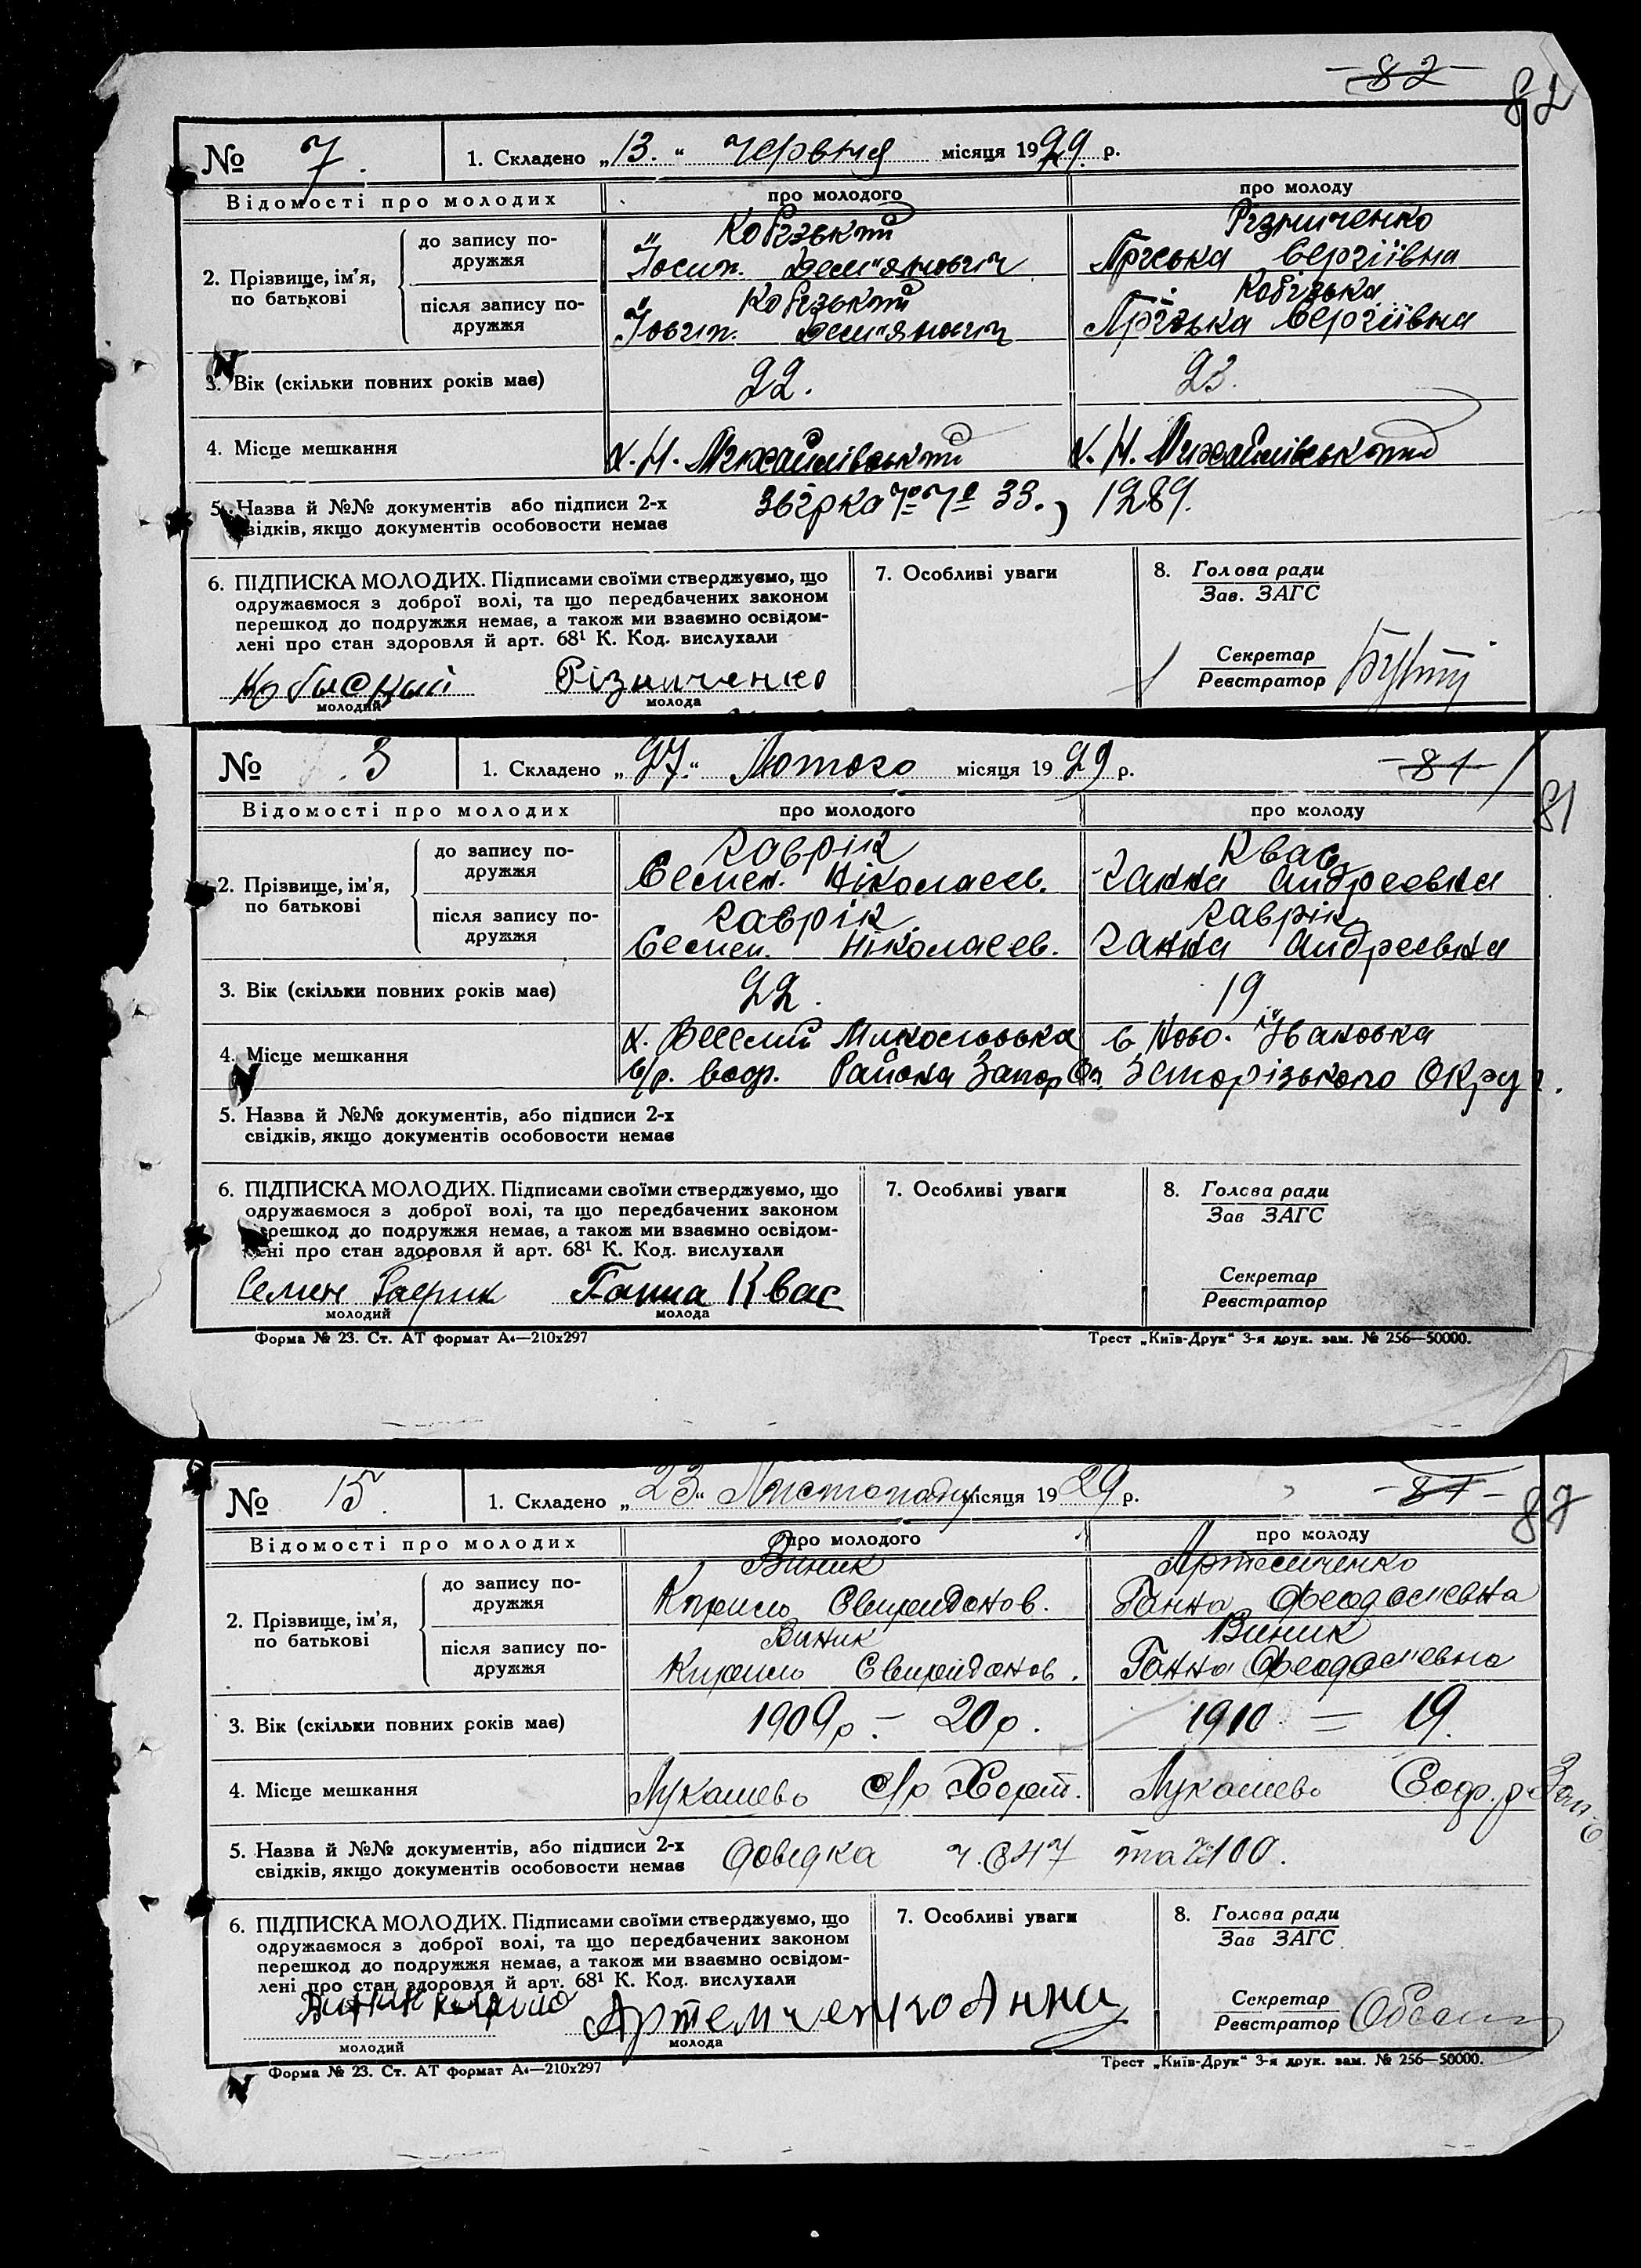 82
82
№ 7. 1. Складено „13.“ червня місяця 1929. р.
Відомості про молодих про молодого про молоду
2. Прізвище, ім’я, по батькові
до запису подружжя
Кобізький Різниченко
Йосип. Дем"янович Пріська Сергіївна
після запису подружжя
Кобізький Кобізька
Йосип. Дем"янович Пріська Сергіївна
3. Вік (скільки повних років має) 22. 23.
4. Місце мешкання х. Н. Михайлівський х. Н. Михайлівський
5. Назва й №№ документів або підписи 2-х
свідків, якщо документів особовости немає
33., 1289.
6. ПІДПИСКА МОЛОДИХ. Підписами своїми стверджуємо, що
одружаємося з доброї волі, та що передбачених законом
перешкод до подружжя немає, а також ми взаємно освідом-
лені про стан здоровля й арт. 68¹ К. Код. вислухали
Різниченко
молодий молода
7. Особливі уваги
8. Голова ради
Зав. ЗАГС
Секретар
Реєстратор
№ 3 1. Складено „27.“ Лютого місяця 1929 р.
81
81
Відомості про молодих про молодого про молоду
2. Прізвище, ім’я, по батькові
до запису подружжя
Гаврік Квас
Семен. Ніколаєв. Ганна Андреевна
після запису подружжя
Гаврік Гаврік
Семен. Ніколаєв. Ганна Андреевна
3. Вік (скільки повних років має) 22. 19.
4. Місце мешкання
х. Веселий Микольська с. Ново-Івановка
с/р. Софр. Района Запор Ок. Запорізького Округ.
5. Назва й №№ документів, або підписи 2-х
свідків, якщо документів особовости немає
6. ПІДПИСКА МОЛОДИХ. Підписами своїми стверджуємо, що
одружаємося з доброї волі, та що передбачених законом
перешкод до подружжя немає, а також ми взаємно освідом-
лені про стан здоровля й арт. 68¹ К. Код. вислухали
Семен Гаврик Ганна Квас
молодий молода
7. Особливі уваги
8. Голова ради
Зав ЗАГС
Секретар
Реєстратор
Форма № 23. Ст. АТ формат А₄—210х297 Трест „Київ-Друк“ 3-я друк. зам. № 256—50000.
№ 15. 1. Складено „23“ Листопаду місяця 1929 р.
87
Відомості про молодих про молодого про молоду
2. Прізвище, ім’я, по батькові
до запису подружжя
Виник Артемченко
Кирило Свиридонов. Ганна Феодосіевна
після запису подружжя
Виник Виник
Кирило Свиридонов. Ганна Феодосіевна
3. Вік (скільки повних років має) 1909р – 20р. 1910 = 19.
4. Місце мешкання Лукашево с/р Хорт. Лукашево Софр. р Зап-о
5. Назва й №№ документів, або підписи 2-х
свідків, якщо документів особовости немає
Довідка ч. 647 та 100.
6. ПІДПИСКА МОЛОДИХ. Підписами своїми стверджуємо, що
одружаємося з доброї волі, та що передбачених законом
перешкод до подружжя немає, а також ми взаємно освідом-
лені про стан здоровля й арт. 68¹ К. Код. вислухали
Виник Кирило Артемченко Анна
молодий молода
7. Особливі уваги
8. Голова ради
Зав ЗАГС
Секретар
Реєстратор
Форма № 23. Ст. АТ формат А₄—210х297 Трест „Київ-Друк“ 3-я друк. зам. № 256—50000.